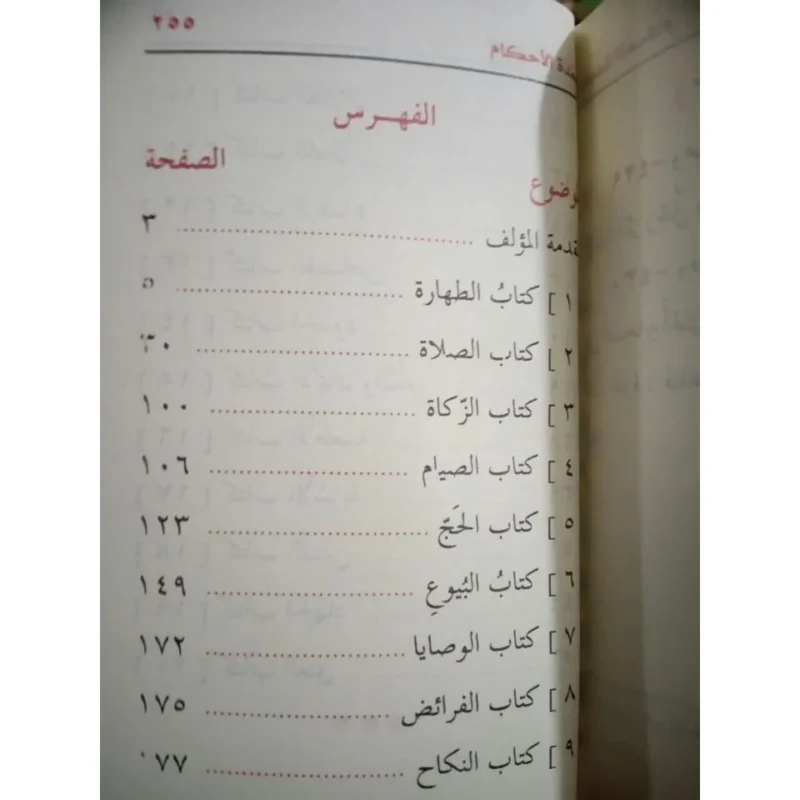 الأحكام ٢٥٥
الفهـرس
الصفحة
مقدمة المؤلف ........ ٣
١ ] كتابُ الطهارة ........ ٥
٢ ] كتاب الصلاة ........ ٣٠
٣ ] كتاب الزّكاة ........ ١٠٠
٤ ] كتاب الصيام ........ ١٠٦
٥ ] كتاب الحَجّ ........ ١٢٣
٦ ] كتابُ البُيوعِ ........ ١٤٩
٧ ] كتاب الوصايا ........ ١٧٢
٨ ] كتاب الفرائض ........ ١٧٥
٩ ] كتاب النكاح ........ ٧٧